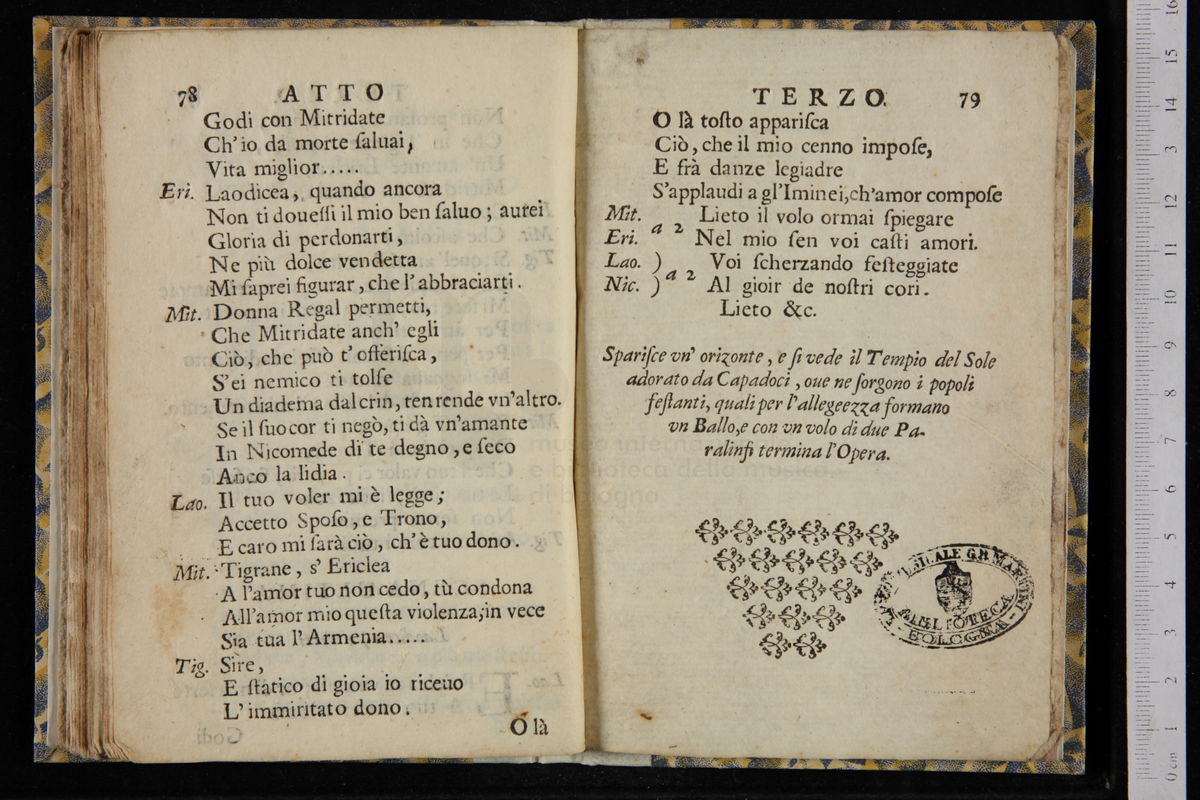 78 ATTO
Godi con Mitridate
Ch'io da morte ſaluai,
Vita miglior.....
Eri. Laodicea, quando ancora
Non ti doueſſi il mio ben ſaluo; aurei
Gloria di perdonarti,
Ne più dolce vendetta
Mi ſaprei figurar, che l'abbraciarti.
Mit. Donna Regal permetti,
Che Mitridate anch' egli
Ciò, che può t' offeriſca,
S'ei nemico ti tolſe
Un diadema dal crin, ten rende vn'altro.
Se il ſuo cor ti negò, ti dà vn'amante
In Nicomede di te degno, e ſeco
Anco la lidia.
Lao. Il tuo voler mi è legge;
Accetto Spoſo, e Trono,
E caro mi ſarà ciò, ch'è tuo dono.
Mit. Tigrane, s' Ericlea
A l'amor tuo non cedo, tù condona
All'amor mio queſta violenza; in vece
Sia tua l'Armenia.....
Tig. Sire,
E ſtatico di gioia io riceuo
L' immiritato dono.
O là
TERZO. 79
O là toſto appariſca
Ciò, che il mio cenno impoſe,
E frà danze legiadre
S'applaudi a gl'Iminei, ch'amor compoſe
Mit. a 2 Lieto il volo ormai ſpiegare
Eri. Nel mio ſen voi caſti amori.
Lao. ) a 2 Voi ſcherzando feſteggiate
Nic. ) Al gioir de noſtri cori.
Lieto &c.
Spariſce vn' orizonte, e ſi vede il Tempio del Sole
adorato da Capadoci, oue ne ſorgono i popoli
feſtanti, quali per l'allegeezza formano
vn Ballo, e con vn volo di due Pa-
ralinfi termina l'Opera.
museo internazionale
e biblioteca della musica
di bologna
LICEO MUSICALE G.B. MARTINI
BIBLIOTECA
- BOLOGNA -